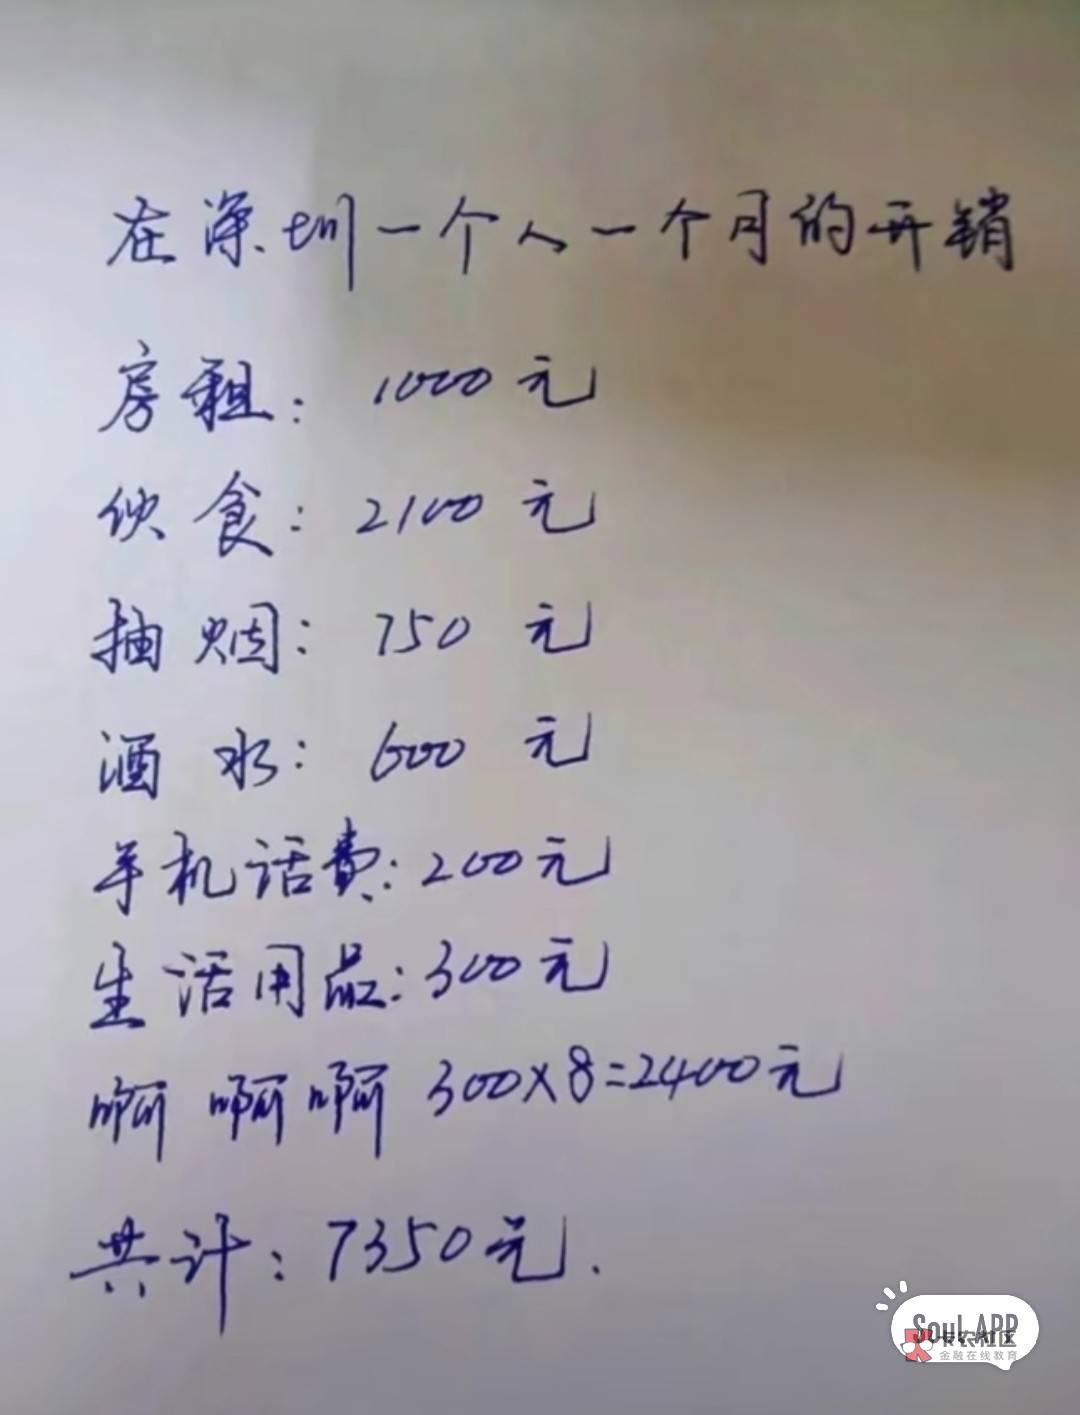 在深圳一个人一个月的开销
房租：1000元
伙食：2100元
抽烟：750元
酒水：600元
手机话费：200元
生活用品：300元
啊啊啊 300×8=2400元
共计：7350元.
Soul APP
卡农社区
金融在线教育